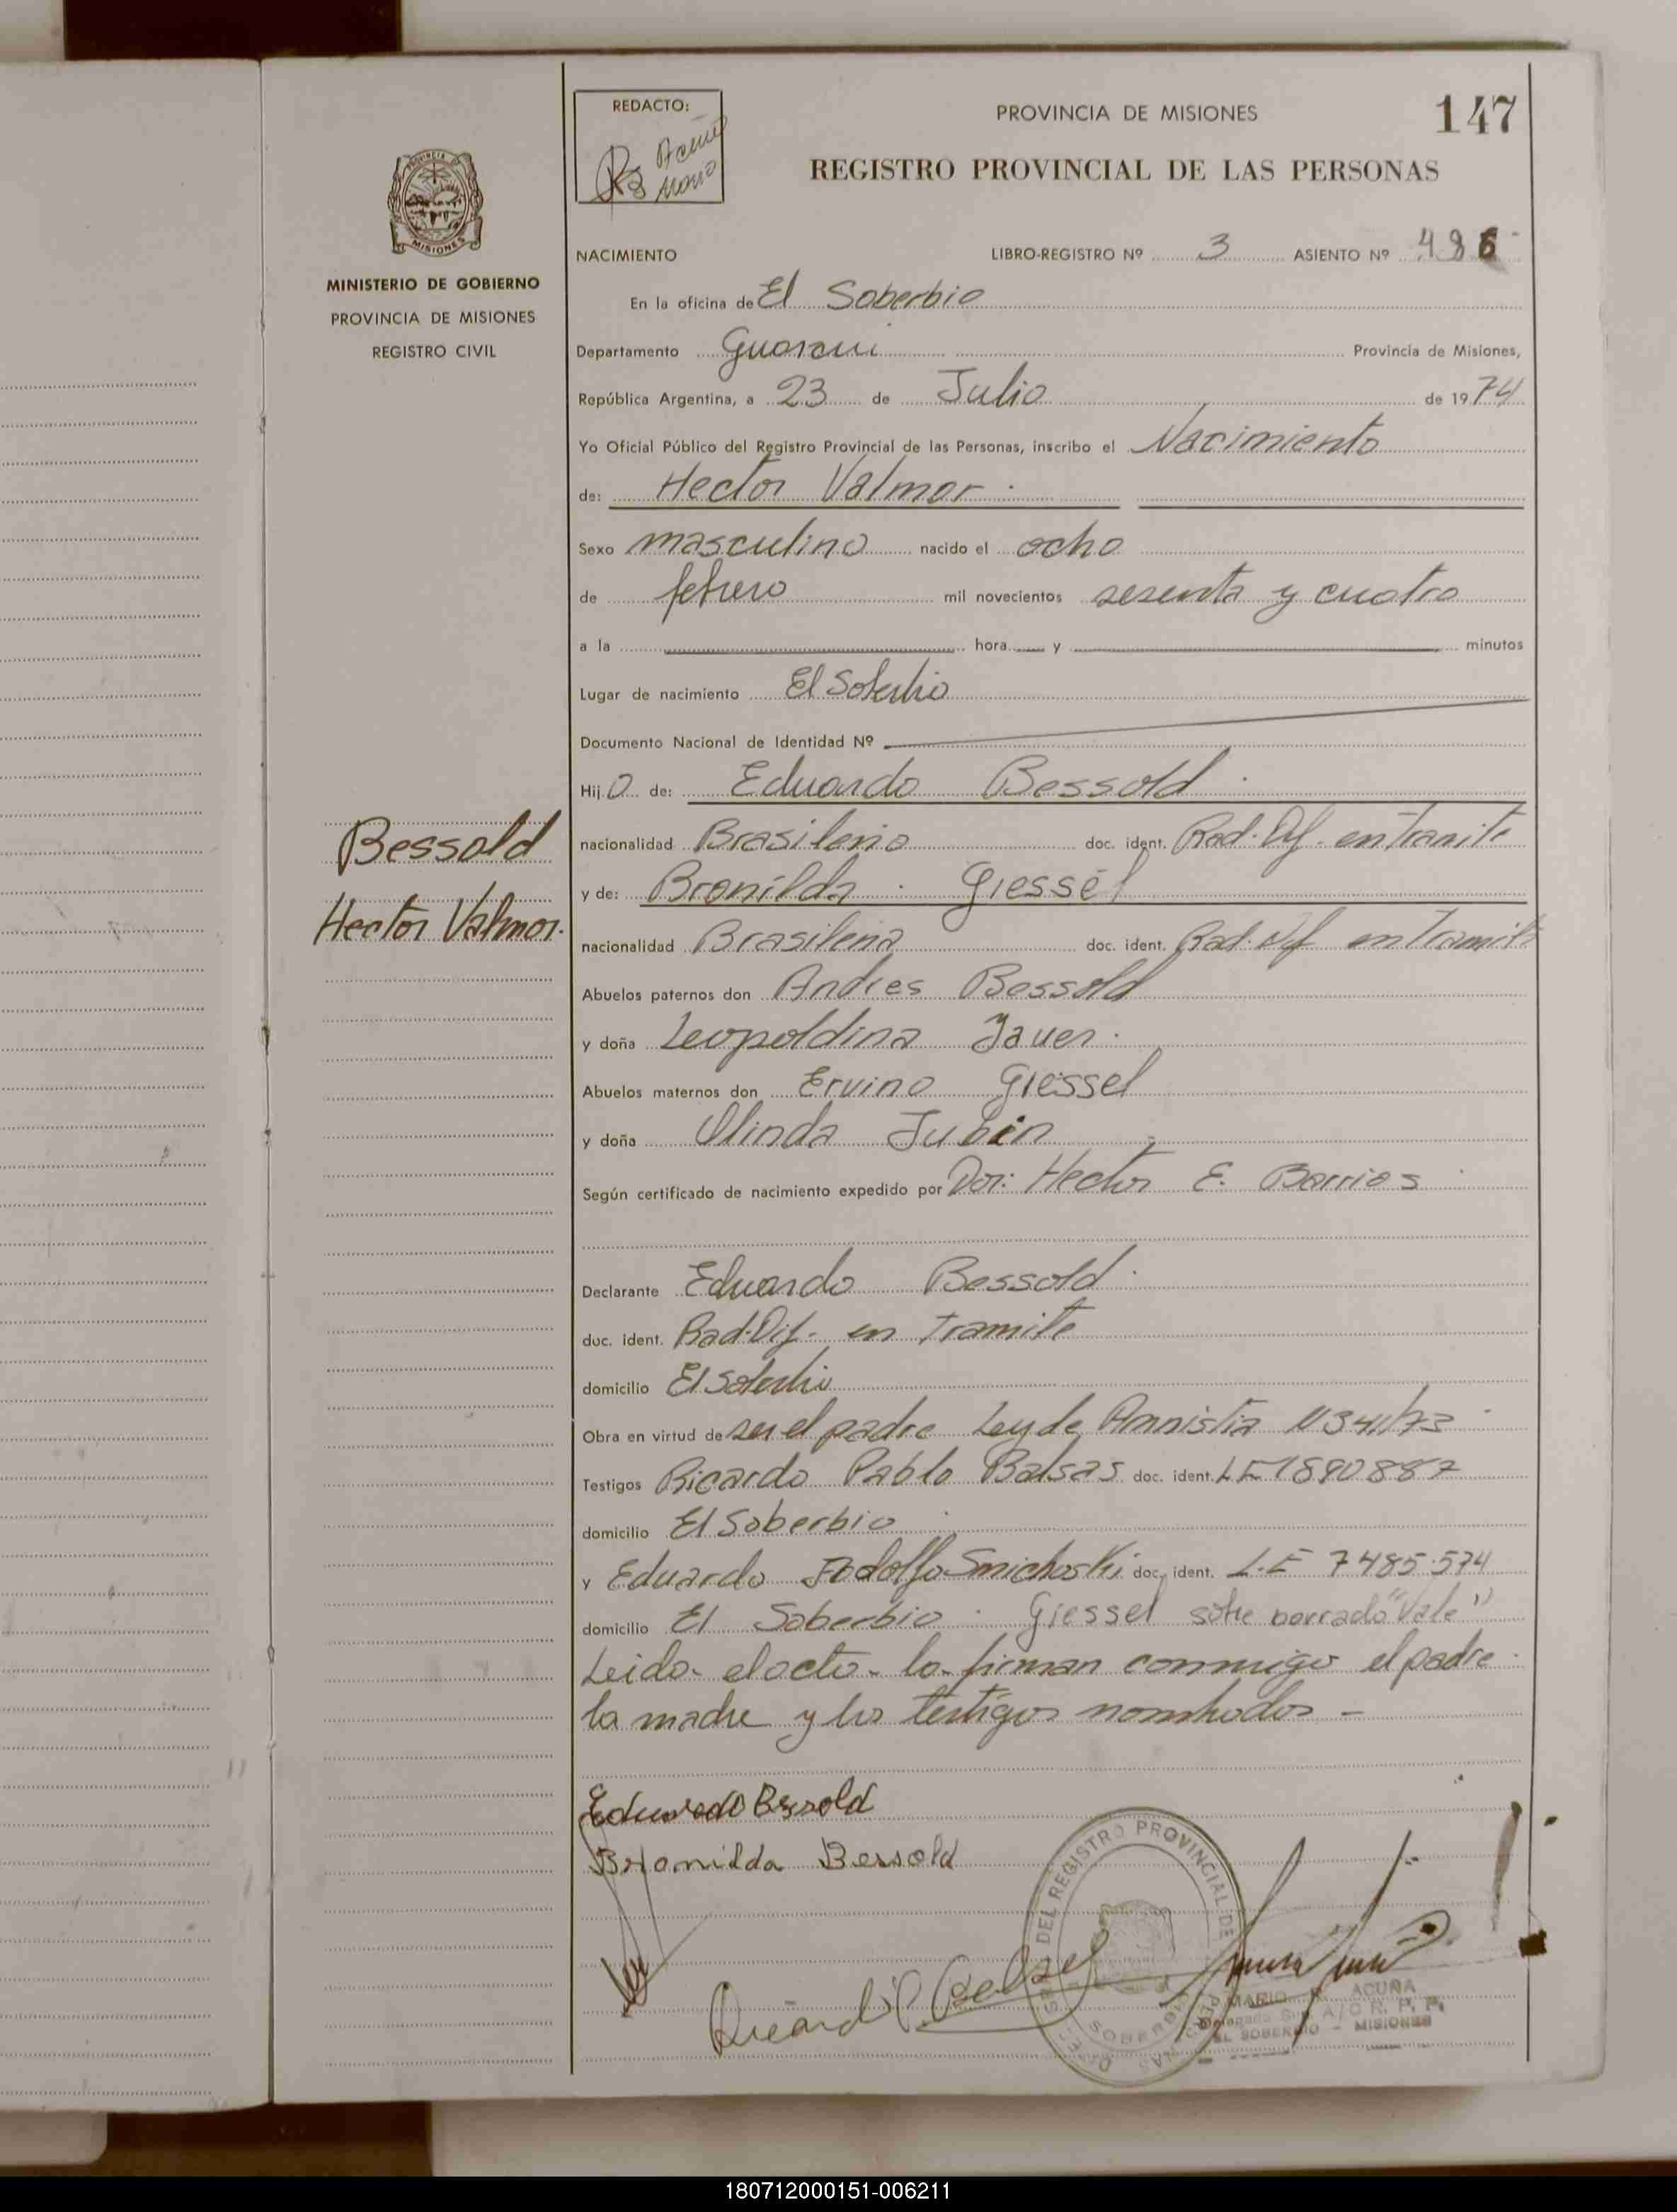 REDACTO:
PROVINCIA DE MISIONES
147
REGISTRO PROVINCIAL DE LAS PERSONAS
MINISTERIO DE GOBIERNO
PROVINCIA DE MISIONES
REGISTRO CIVIL
NACIMIENTO LIBRO-REGISTRO Nº 3 ASIENTO Nº 486
En la oficina de El Soberbio
Departamento Guarani Provincia de Misiones,
República Argentina, a 23 de Julio de 1974
Yo Oficial Público del Registro Provincial de las Personas, inscribo el Nacimiento
de: Hector Valmor
Sexo masculino nacido el ocho
de febrero mil novecientos sesenta y cuatro
a la hora y minutos
Lugar de nacimiento El Soberbio
Documento Nacional de Identidad Nº
Hijo de: Eduardo Bessold
Bessold
Hector Valmor.
nacionalidad Brasileño doc. ident. Rad. Def. en tramite
y de: Bronilda Giessel
nacionalidad Brasileña doc. ident. Rad. Def en tramite
Abuelos paternos don Andres Bessold
y doña Leopoldina Jauer.
Abuelos maternos don Ervino Giessel
y doña Olinda Jubin
Según certificado de nacimiento expedido por Dor: Hector E. Barrios
Declarante Eduardo Bessold
doc. ident. Rad. Def. en tramite
domicilio El Soberbio
Obra en virtud de ser el padre Ley de Amnistia
Testigos Ricardo Pablo Balsas doc. ident. LE 1890887
domicilio El Soberbio
y Eduardo Rodolfo Smichoski doc. ident. L.E 7485.574
domicilio El Soberbio. Giessel sobre borrado "Vale"
Leido el acto lo firman conmigo el padre
la madre y los testigos nombrados -
Eduardo Bessold
Bronilda Bessold
DEL REGISTRO PROVINCIAL DE
SOBERBIO
MARIO ACUÑA
EL SOBERBIO - MISIONES
180712000151-006211